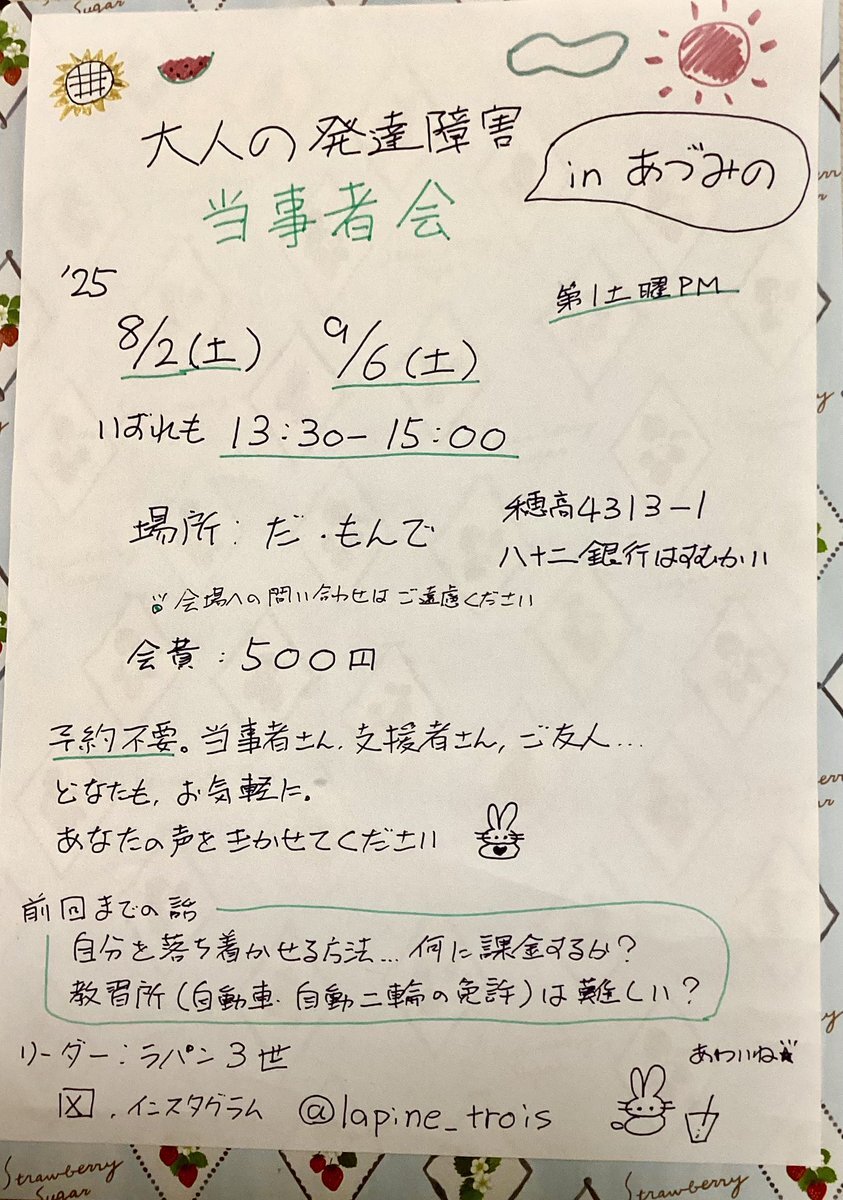 大人の発達障害
in あづみの
当事者会
'25
第1土曜PM
8/2(土) 9/6(土)
いずれも 13:30-15:00
場所: だ・もんで
穂高4313-1
八十二銀行はすむかい
※会場への問い合わせはご遠慮ください
会費:500円
予約不要。当事者さん、支援者さん、ご友人…
どなたも、お気軽に。
あなたの声をきかせてください
前回までの話
自分を落ち着かせる方法…何に課金するか?
教習所(自動車・自動二輪の免許)は難しい?
リーダー:ラパン3世
あわいね★
X、インスタグラム @lapine_trois
Strawberry
Sugar